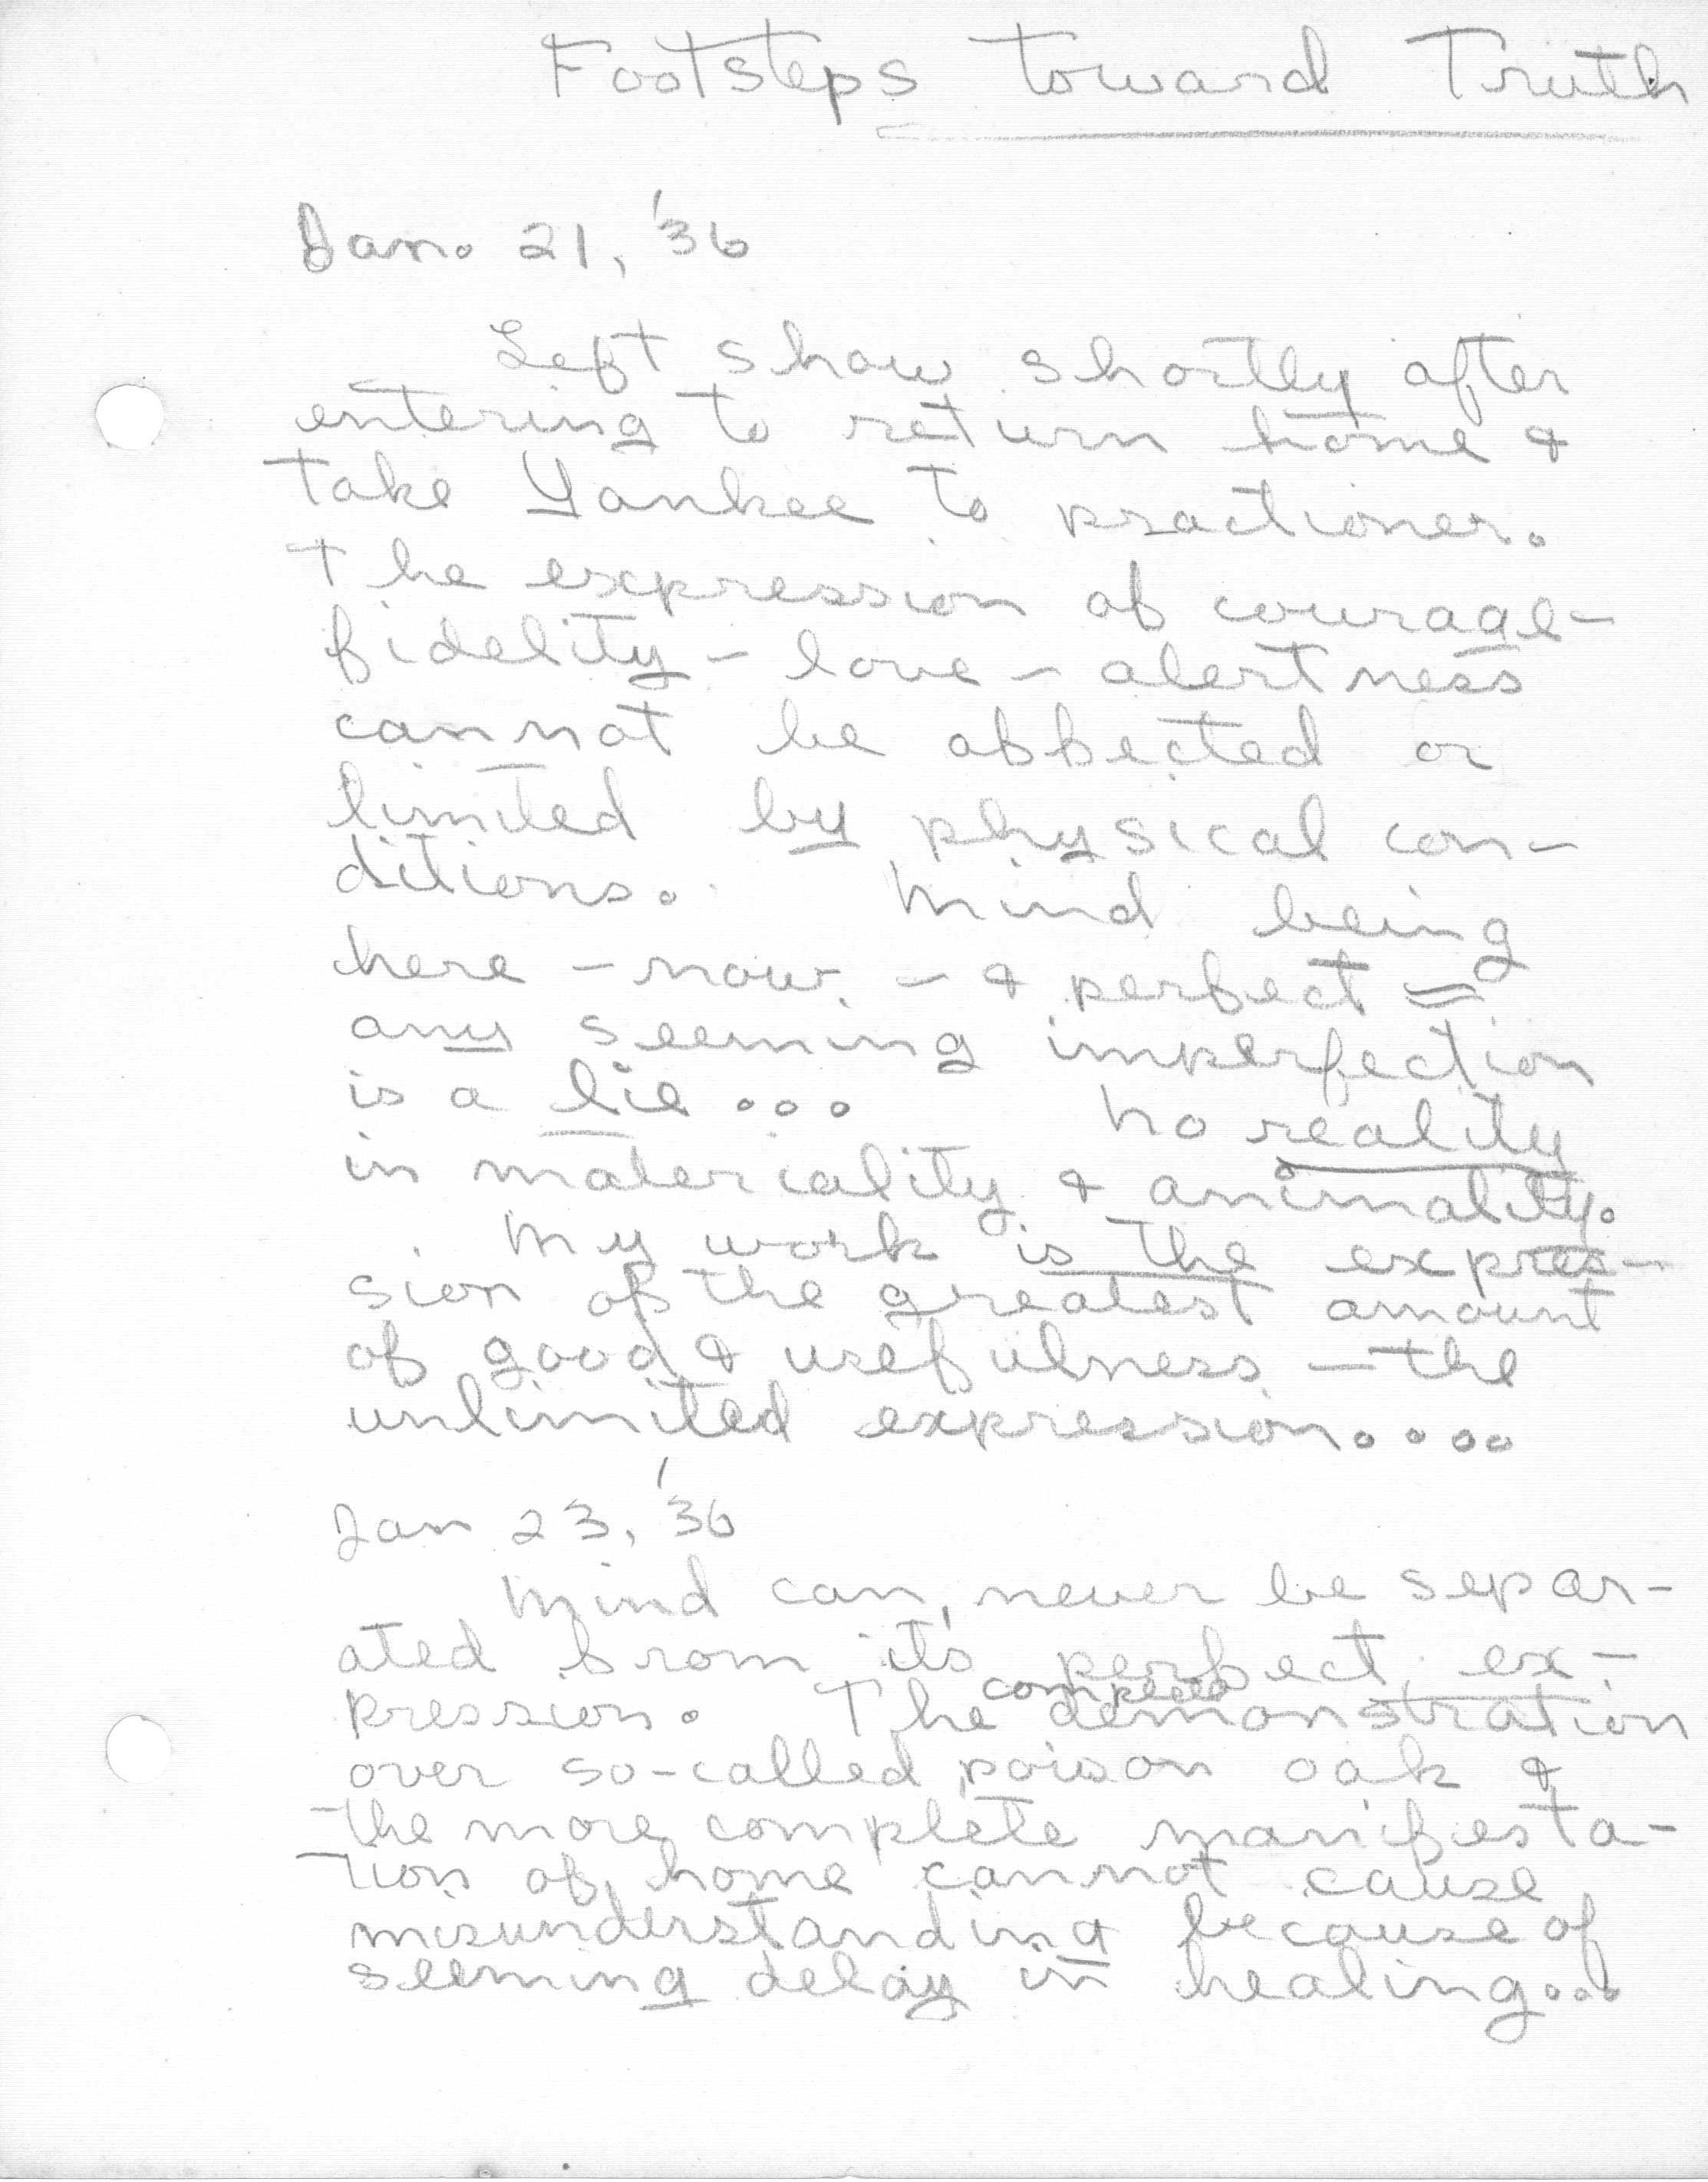 Footsteps toward Truth
Jan. 21, '36
Left show shortly after
entering to return home &
take Yankee to practioner.
The expression of courage-
fidelity - love - alertness
cannot be affected or
limited by physical con-
ditions. Mind being
here - now - & perfect =
any seeming imperfection
is a lie... No reality
in materiality & animality.
My work is the expres-
sion of the greatest amount
of good & usefulness - the
unlimited expression....
Jan 23, '36
Mind can never be separ-
ated from it's perfect ex-
pression. The completed demonstration
over so-called poison oak &
the more complete manifesta-
tion of home cannot cause
misunderstanding because of
seeming delay in healing...